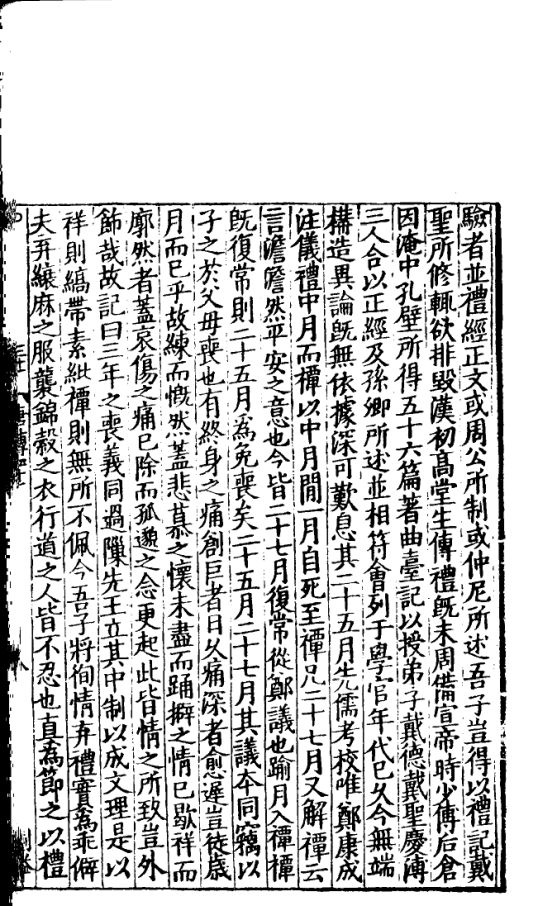 驗者並禮經正文或周公所制或仲尼所述吾子豈得以禮記戴
聖所修輒欲排毀漢初高堂生傳禮既未周備宣帝時少傅后倉
因淹中孔壁所得五十六篇著曲臺記以授弟子戴德戴聖慶溥
三人合以正經及孫卿所述並相符會列于學官年代已久今無端
構造異論既無依據深可歎息其二十五月先儒考校唯鄭康成
注儀禮中月而禫以中月間一月自死至禫凡二十七月又解禫云
言澹澹然平安之意也今皆二十七月復常從鄭議也踰月入禫禫
既復常則二十五月為免喪矣二十五月二十七月其議本同竊以
子之於父母喪也有終身之痛創巨者日久痛深者愈遲豈徒歲
月而已乎故練而慨然蓋悲慕之懷未盡而踊擗之情已歇祥而
廓然者蓋哀傷之痛已除而孤邈之念更起此皆情之所致豈外
飾哉故記曰三年之喪義同過隟先王立其中制以成文理是以
祥則縞帶素紕禫則無所不佩今吾子將徇情弃禮實為乖僻
夫弃縗麻之服襲錦縠之衣行道之人皆不忍也直為節之以禮